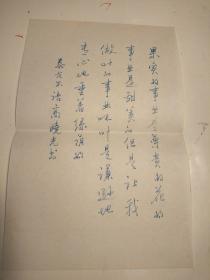 果实的事业是尊贵的花的
事业是甜美的但是让我
做叶的事业吧叶是谦逊地
专心地垂着绿荫的
泰戈尔语高晓光书